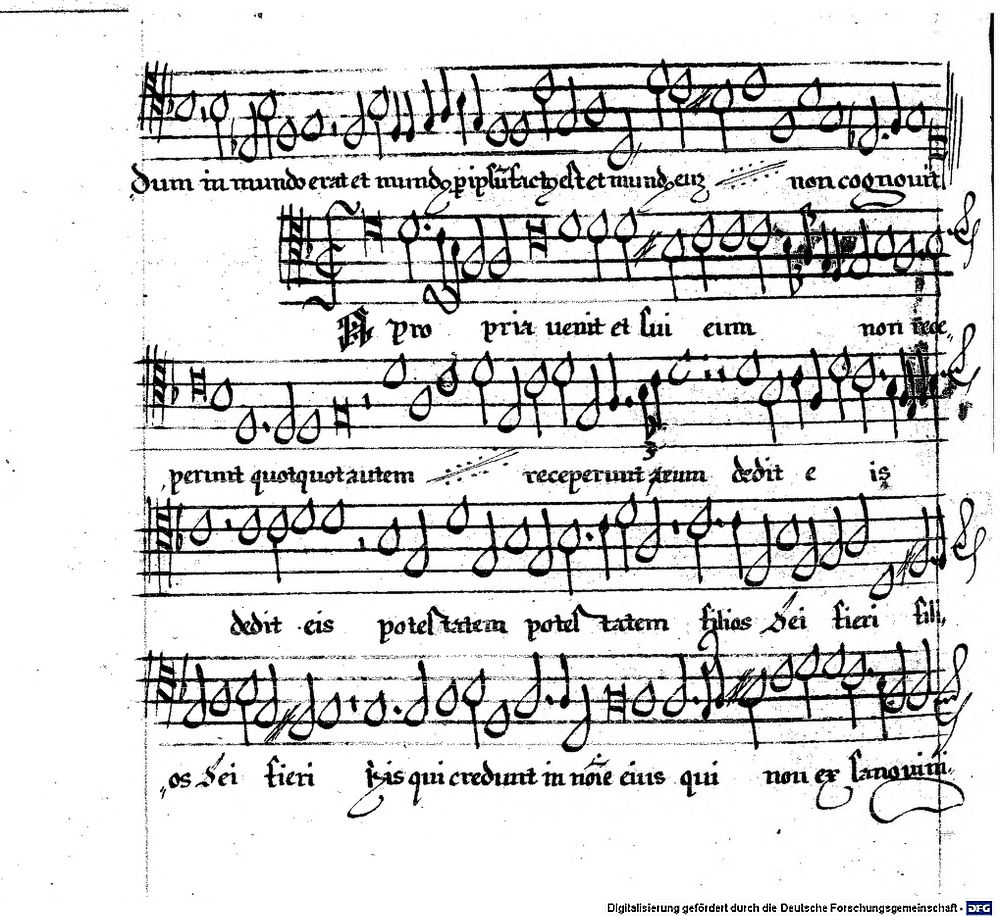 dum in mundo erat et mund9 p ipsū fact9 est et mund9 eū non cognouit
A pro pria uenit et sui eum non rece„
perunt quotquot autem receperunt eum dedit e is
dedit eis potestatem potestatem filios dei fieri fili„
„os dei fieri his qui credunt in nōie eius qui non ex sanguini
Digitalisierung gefördert durch die Deutsche Forschungsgemeinschaft - DFG